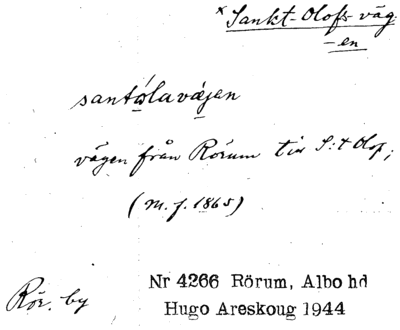 × Sankt-Olofs-väg
-en
santólavæjen
vägen från Rörum till S:t Olof;
(m. f. 1865)
Rör. by
Nr 4266 Rörum, Albo hd
Hugo Areskoug 1944